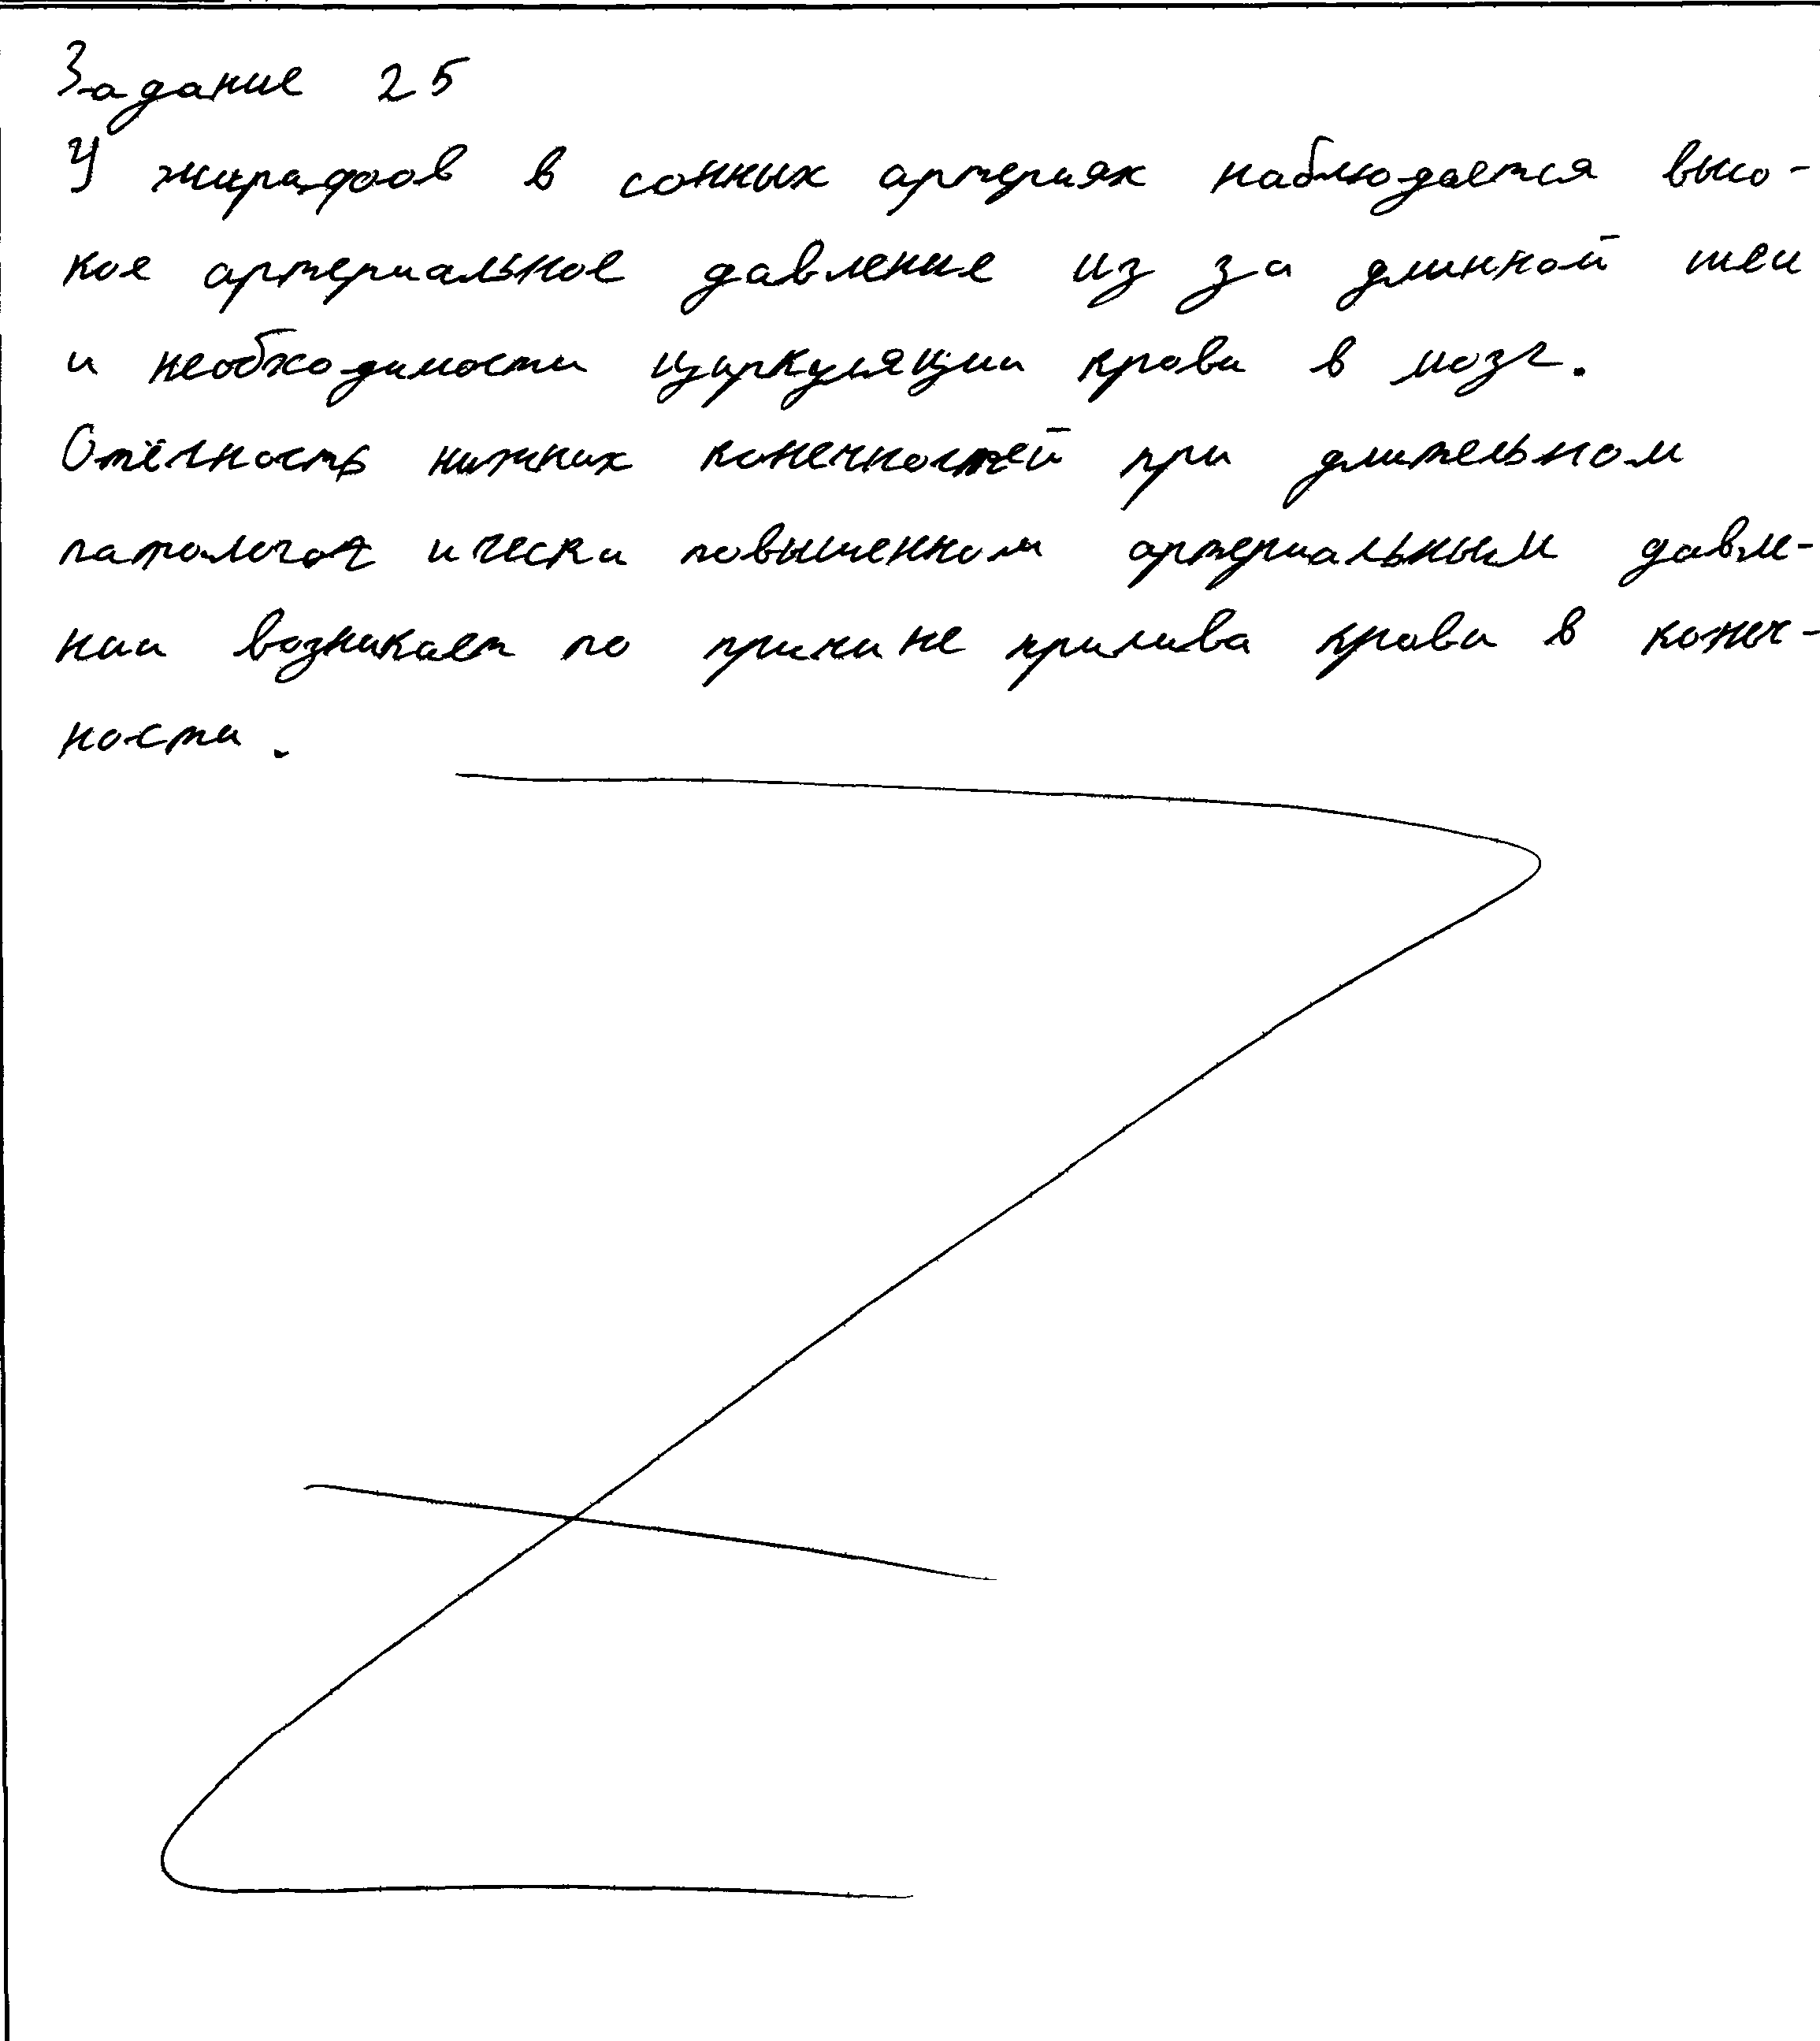 Задание 25
У жирафов в сонных артериях наблюдается высо-
кое артериальное давление из за длинной шеи
и необходимости циркуляции крови в мозг.
Отёчность нижних конечностей при длительном
патологически повышенном артериальным давле-
нии возникает по причине прилива крови в конеч-
ности.